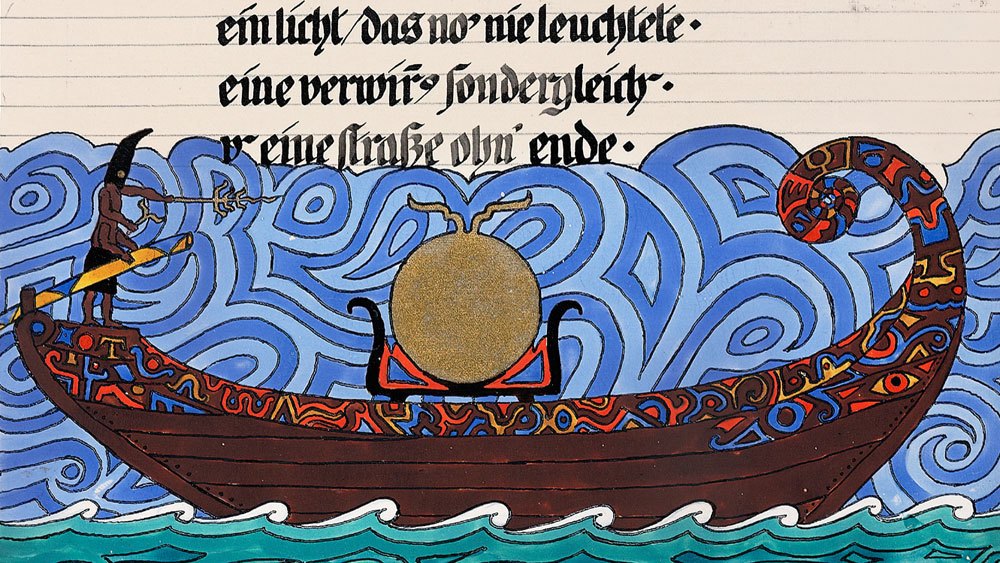 ein licht/das no’ nie leuchtete·
eine verwir̄g sondergleich’·
v’ eine straße ohn’ ende·